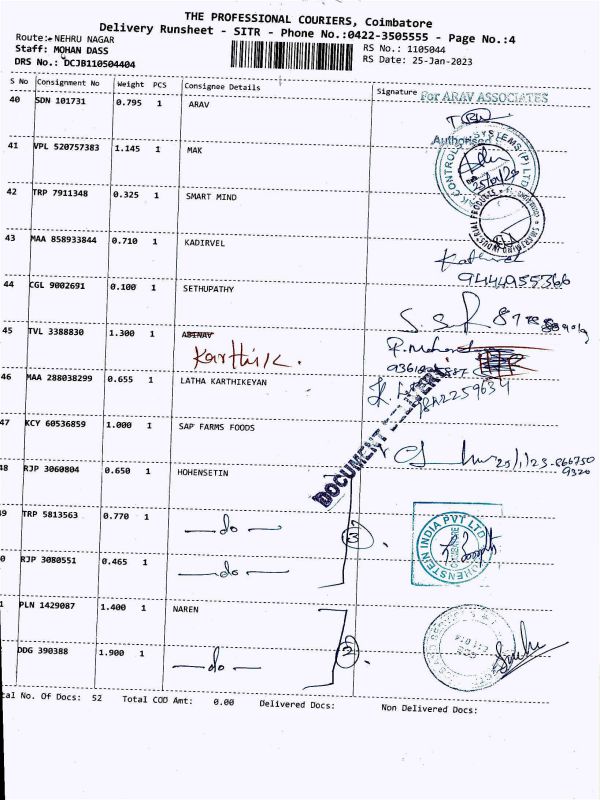 THE PROFESSIONAL COURIERS, Coimbatore
Delivery Runsheet - SITR - Phone No.:0422-3505555 - Page No.:4
Route:- NEHRU NAGAR
RS No.: 1105044
Staff: MOHAN DASS
RS Date: 25-Jan-2023
DRS No.: DCJB110504404
S No Consignment No Weight PCS Consignee Details Signature
For ARAV ASSOCIATES
40 SDN 101731 0.795 1 ARAV
Authorised
41 VPL 520757383 1.145 1 MAK
42 TRP 7911348 0.325 1 SMART MIND
43 MAA 858933844 0.710 1 KADIRVEL
9444955366
44 CGL 9002691 0.100 1 SETHUPATHY
45 TVL 3388830 1.300 1 ABINAV
Karthik.
46 MAA 288038299 0.655 1 LATHA KARTHIKEYAN
47 KCY 60536859 1.000 1 SAP FARMS FOODS
DOCUMENT
48 RJP 3060804 0.650 1 HOHENSETIN
49 TRP 5813563 0.770 1 —do—
3
HOHENSTEIN INDIA PVT LTD
0 RJP 3080551 0.465 1 —do—
1 PLN 1429087 1.400 1 NAREN
2
DDG 390388 1.900 1 —do—
tal No. Of Docs: 52 Total COD Amt: 0.00 Delivered Docs: Non Delivered Docs: